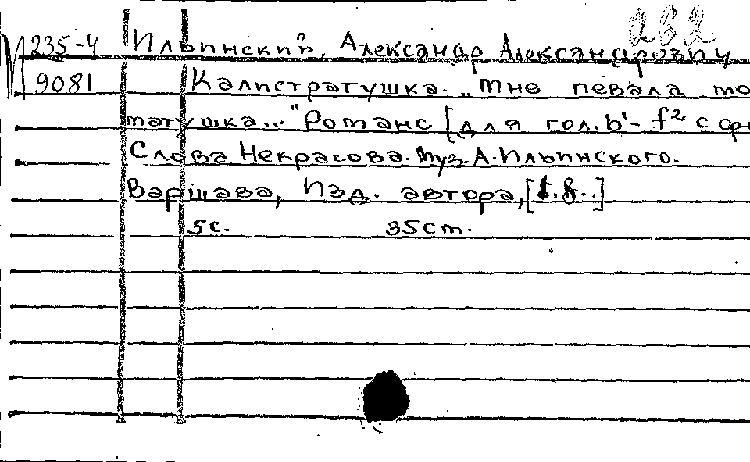 282
М 235-4 Ильинский, Александр Александрович
9081 Калистратушка. „Мне певала мо
матушка..." Романс [для гол. b'- f² с фп
Слова Некрасова. Муз. А. Ильинского.
Варшава, Изд. автора,
5с. 35cm.